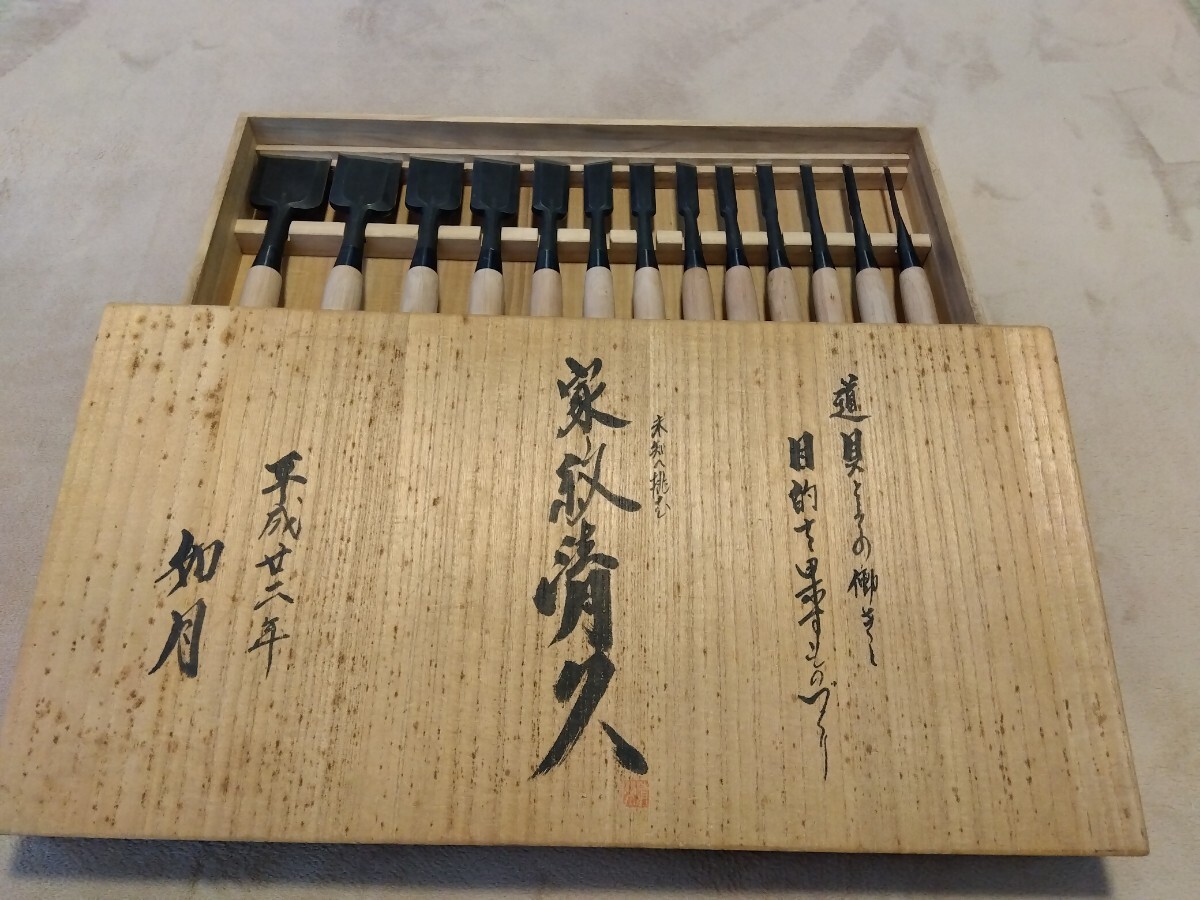 道具としての働きし
目的を果すものづくり
未知へ挑む
家紋清久
平成廿二年
如月